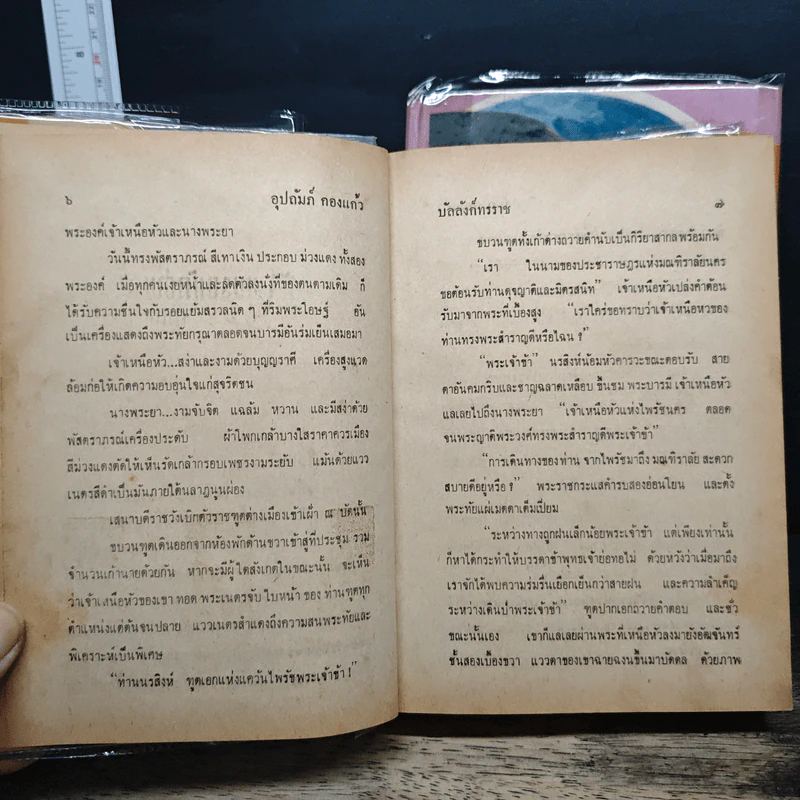 ๖
อุปถัมภ์ กองแก้ว
พระองค์เจ้าเหนือหัวและนางพระยา
วันนี้ทรงพัสตราภรณ์ สีเทาเงิน ประกอบ ม่วงแดง ทั้งสอง
พระองค์ เมื่อทุกคนเงยหน้าและลดตัวลงนั่งที่ของตนตามเดิม ก็
ได้รับความชื่นใจกับรอยแย้มสรวลนิด ๆ ที่ริมพระโอษฐ์ อัน
เป็นเครื่องแสดงถึงพระทัยกรุณาตลอดจนบารมีอันร่มเย็นเสมอมา
เจ้าเหนือหัว...สง่าและงามด้วยบุญญราศี เครื่องสูงแวด
ล้อมก่อให้เกิดความอบอุ่นใจแก่สุจริตชน
นางพระยา...งามจับจิต แฉล้ม หวาน และมีสง่าด้วย
พัสตราภรณ์เครื่องประดับ ผ้าโพกเกล้าบางใสราคาควรเมือง
สีม่วงแดงตัดให้เห็นรัดเกล้ากรอบเพชรงามระยับ แม้นด้วยแวว
เนตรสีดำเป็นมันภายใต้นลาฎนูนผ่อง
เสนาบดีราชวังเบิกตัวราชฑูตต่างเมืองเข้าเฝ้า ณ บัดนั้น
ขบวนฑูตเดินออกจากห้องพักด้านขวาเข้าสู่ที่ประชุม รวม
จำนวนเก้านายด้วยกัน หากจะมีผู้ใดสังเกตในขณะนั้น จะเห็น
ว่าเจ้าเหนือหัวของเขา ทอด พระเนตรจับ ใบหน้า ของ ท่านฑูตทุก
ตำแหน่งแต่ต้นจนปลาย แววเนตรสำแดงถึงความสนพระทัยและ
พิเคราะห์เป็นพิเศษ
“ท่านนรสิงห์ ฑูตเอกแห่งแคว้นไพรัชพระเจ้าข้า !”
บัลลังก์ทรราช
๗
ขบวนฑูตทั้งเก้าต่างถวายคำนับเป็นกิริยาสากลพร้อมกัน
“เรา ในนามของประชาราษฎรแห่งมณฑิราลัยนคร
ขอต้อนรับท่านดุจญาติและมิตรสนิท” เจ้าเหนือหัวเปล่งคำต้อน
รับมาจากพระที่เบื้องสูง “เราใคร่ขอทราบว่าเจ้าเหนือหัวของ
ท่านทรงพระสำราญดีหรือไฉน ?”
“พระเจ้าข้า” นรสิงห์น้อมหัวคารวะขณะตอบรับ สาย
ตาอันคมกริบและชาญฉลาดเหลือบ ขึ้นชม พระบารมี เจ้าเหนือหัว
แลเลยไปถึงนางพระยา “เจ้าเหนือหัวแห่งไพรัชนคร ตลอด
จนพระญาติพระวงศ์ทรงพระสำราญดีพระเจ้าข้า”
“การเดินทางของท่าน จากไพรัชมาถึง มณฑิราลัย สะดวก
สบายดีอยู่หรือ ?” พระราชกระแสคำรบสองอ่อนโยน และตั้ง
พระทัยแผ่เมตตาเต็มเปี่ยม
“ระหว่างทางถูกฝนเล็กน้อยพระเจ้าข้า แต่เพียงเท่านั้น
ก็หาได้กระทำให้บรรดาข้าพุทธเจ้าย่อท้อไม่ ด้วยหวังว่าเมื่อมาถึง
เราจักได้พบความร่มรื่นเยือกเย็นกว่าสายฝน และความลำเค็ญ
ระหว่างเดินป่าพระเจ้าข้า” ฑูตปากเอกถวายคำตอบ และชั่ว
ขณะนั้นเอง เขาก็แลเลยผ่านพระที่เหนือหัวลงมายังอัฒจันทร์
ชั้นสองเบื้องขวา แววตาของเขาฉายฉงนขึ้นมาบัดดล ด้วยภาพ